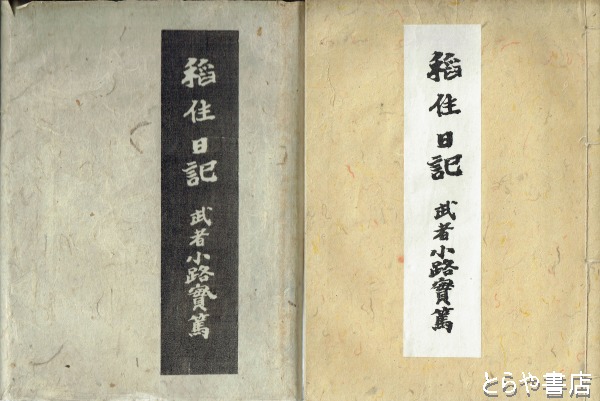 稻住日記
武者小路實篤
稻住日記
武者小路實篤
とらや書店